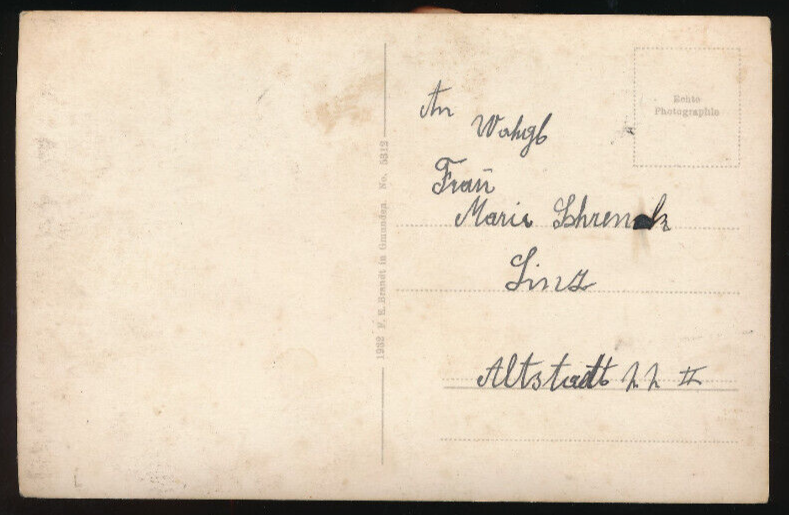 Echte
Photographie
An
Wohgb
Frau
Marie Schrenck
Linz
Altstadt 22 II
1932 F. E. Brandt in Gmunden No. 5812